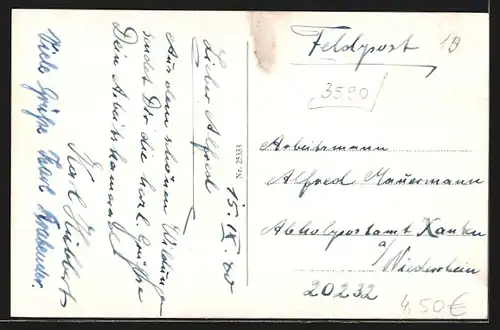 Feldpost
19
3590
15. IX. 40
Lieber Alfred
Aus dem schönen Wildungen
sendet Dir die Grüße
Dein Arbeitskamerad
Karl
Viele Grüße Karl
Nr. 25333
Arbeitsmann
Alfred Mauermann
Abholpostamt Xanten
a/
Niederrhein
20232
4,50€